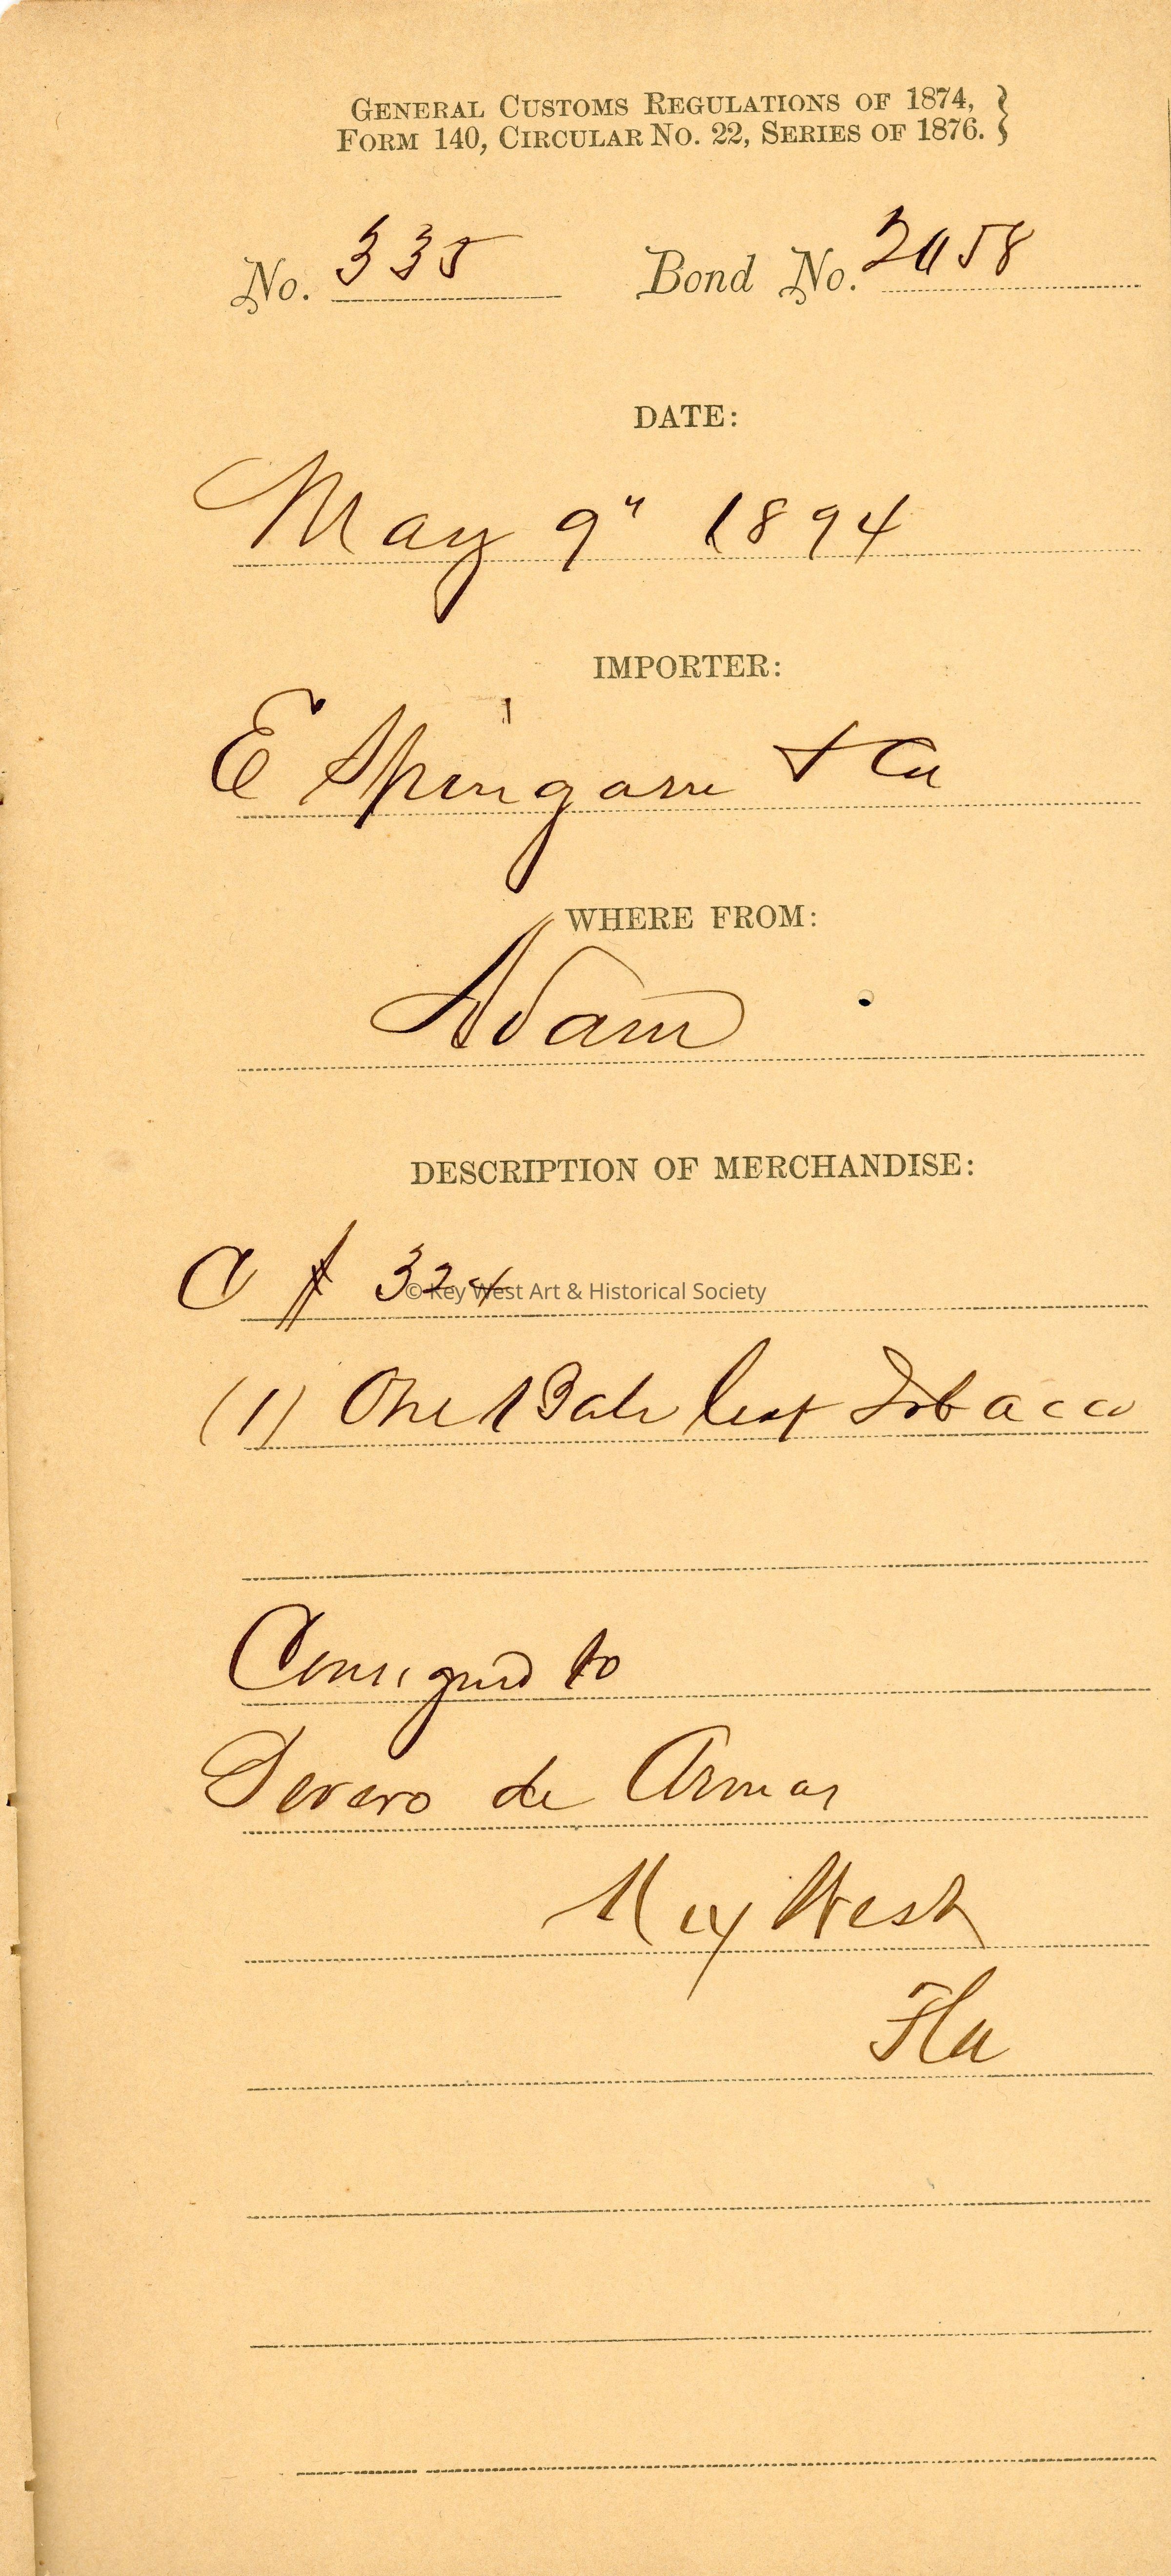 GENERAL CUSTOMS REGULATIONS OF 1874, }
FORM 140, CIRCULAR NO. 22, SERIES OF 1876. }
No. 335 Bond No. 2058
DATE:
May 9" 1894
IMPORTER:
E Spingarn & Co
WHERE FROM:
Adam
DESCRIPTION OF MERCHANDISE:
324
© Key West Art & Historical Society
(1) One Bale leaf Tobacco
Consigned to
Severo de Armas
Key West
Fla